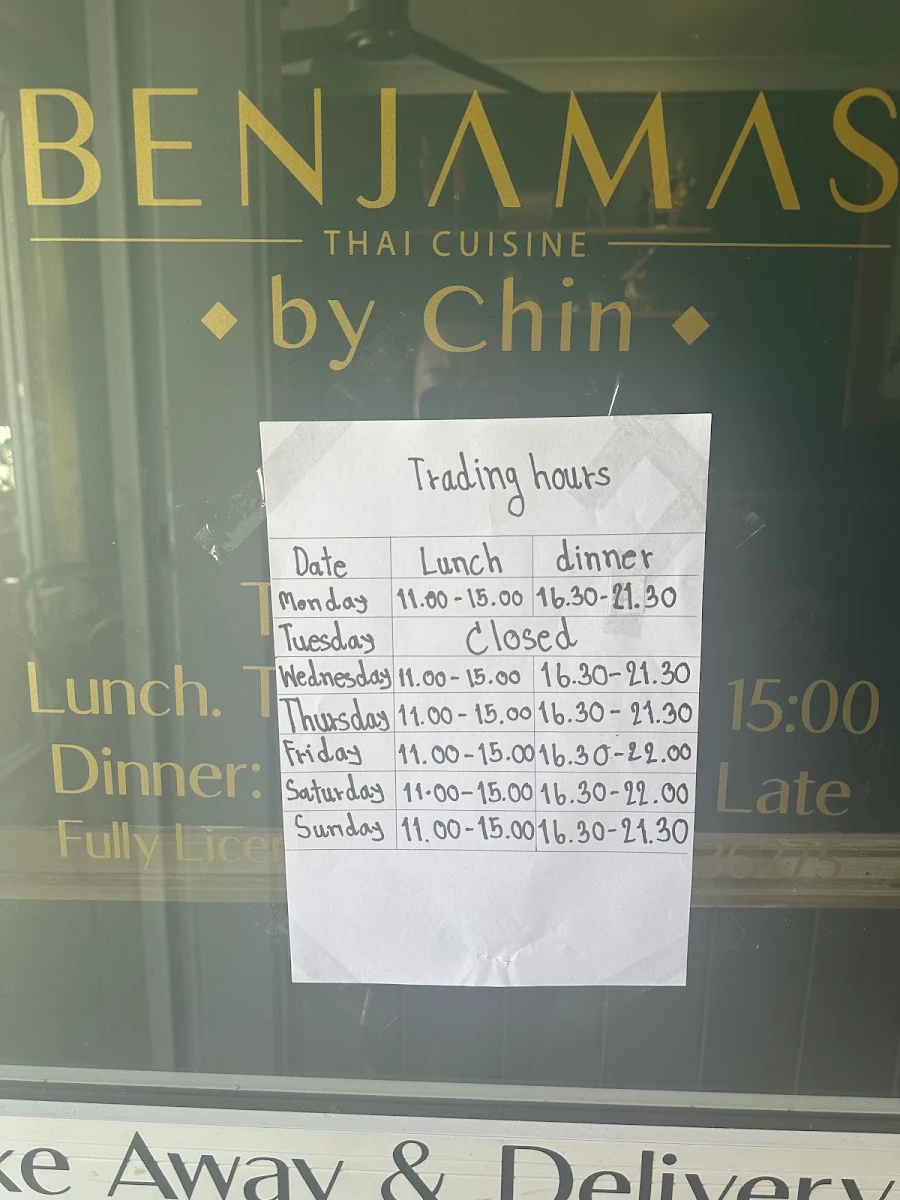 BENJAMAS
THAI CUISINE
by Chin
Trading hours
Date Lunch dinner
Monday 11.00-15.00 16.30-21.30
Tuesday Closed
Wednesday 11.00-15.00 16.30-21.30
Thursday 11.00-15.00 16.30-21.30
Friday 11.00-15.00 16.30-22.00
Saturday 11.00-15.00 16.30-22.00
Sunday 11.00-15.00 16.30-21.30
Lunch. T 15:00
Dinner: Late
Fully Licen
ke Away & Delivery